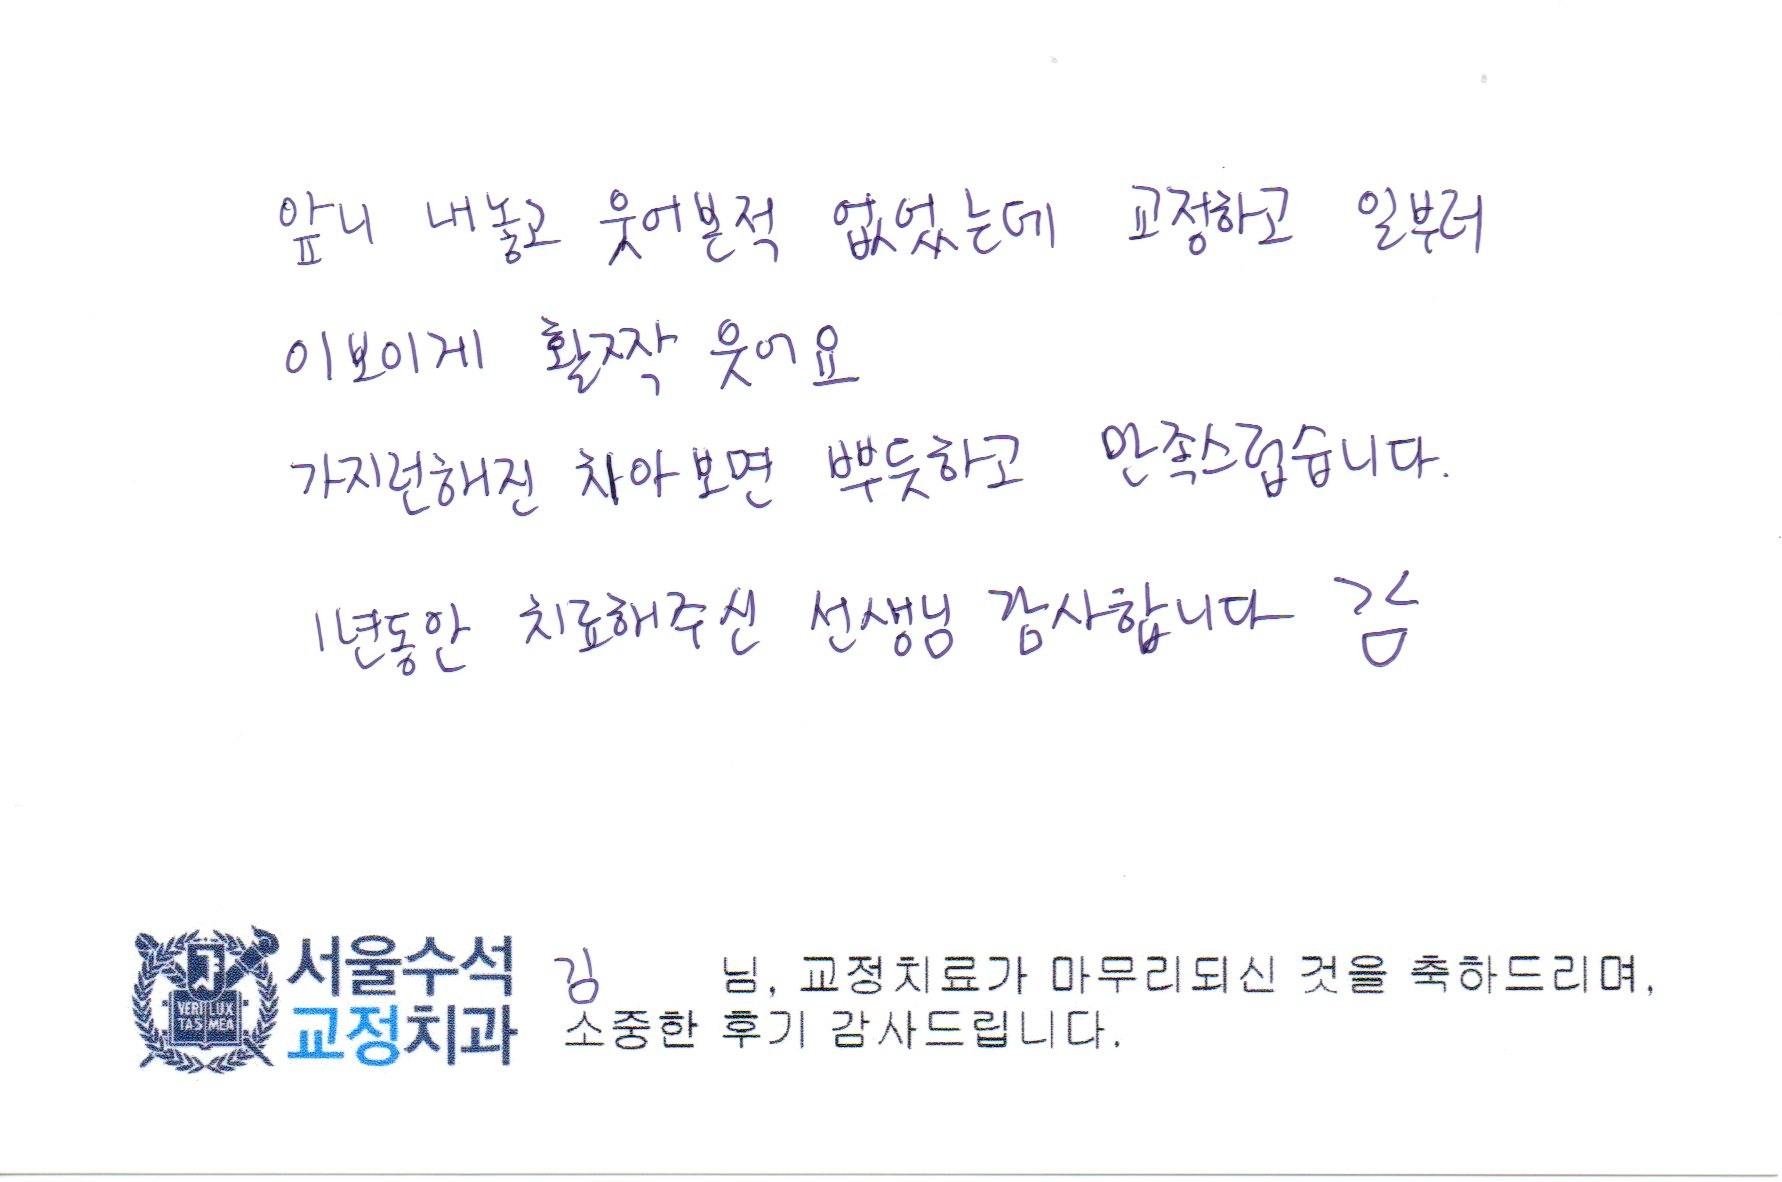 앞니 내놓고 웃어본적 없었는데 교정하고 일부러
이보이게 활짝 웃어요
가지런해진 치아보면 뿌듯하고 만족스럽습니다.
1년동안 치료해주신 선생님 감사합니다 >.<
서울수석
교정치과
VERI LUX
TAS MEA
김 님, 교정치료가 마무리되신 것을 축하드리며,
소중한 후기 감사드립니다.